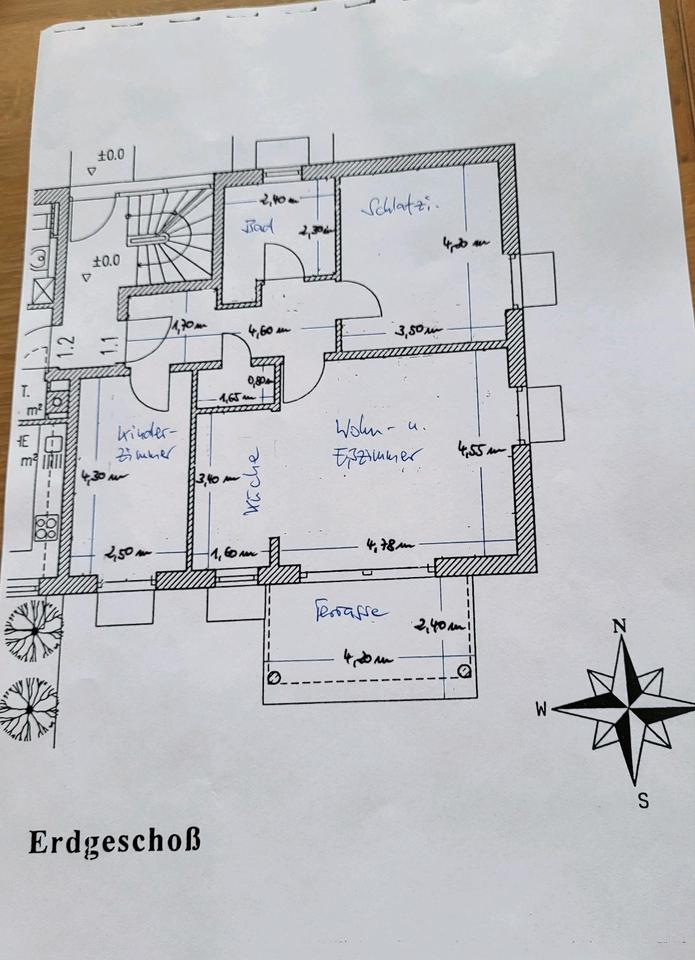 ±0.0
2,40 m
Bad
2,30m
Schlafzi.
4,20 m
±0.0
1,70 m
4,60 m
3,50 m
1.2
1.1
0,80m
1,65 m
T.
m²
Kinder-
zimmer
Wohn- u.
Eßzimmer
4,55 m
HE
m²
4,30 m
3,40 m
Küche
2,50 m
1,60 m
4,78 m
Terrasse
2,40 m
4,20 m
N
W
S
Erdgeschoß